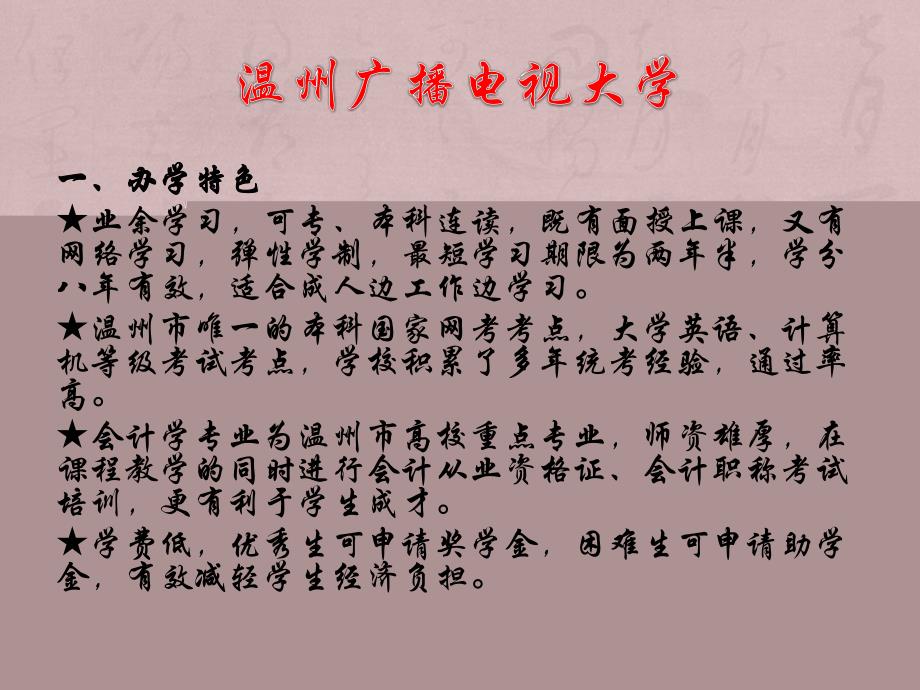 温州广播电视大学
一、办学特色
★业余学习，可专、本科连读，既有面授上课，又有
网络学习，弹性学制，最短学习期限为两年半，学分
八年有效，适合成人边工作边学习。
★温州市唯一的本科国家网考考点，大学英语、计算
机等级考试考点，学校积累了多年统考经验，通过率
高。
★会计学专业为温州市高校重点专业，师资雄厚，在
课程教学的同时进行会计从业资格证、会计职称考试
培训，更有利于学生成才。
★学费低，优秀生可申请奖学金，困难生可申请助学
金，有效减轻学生经济负担。